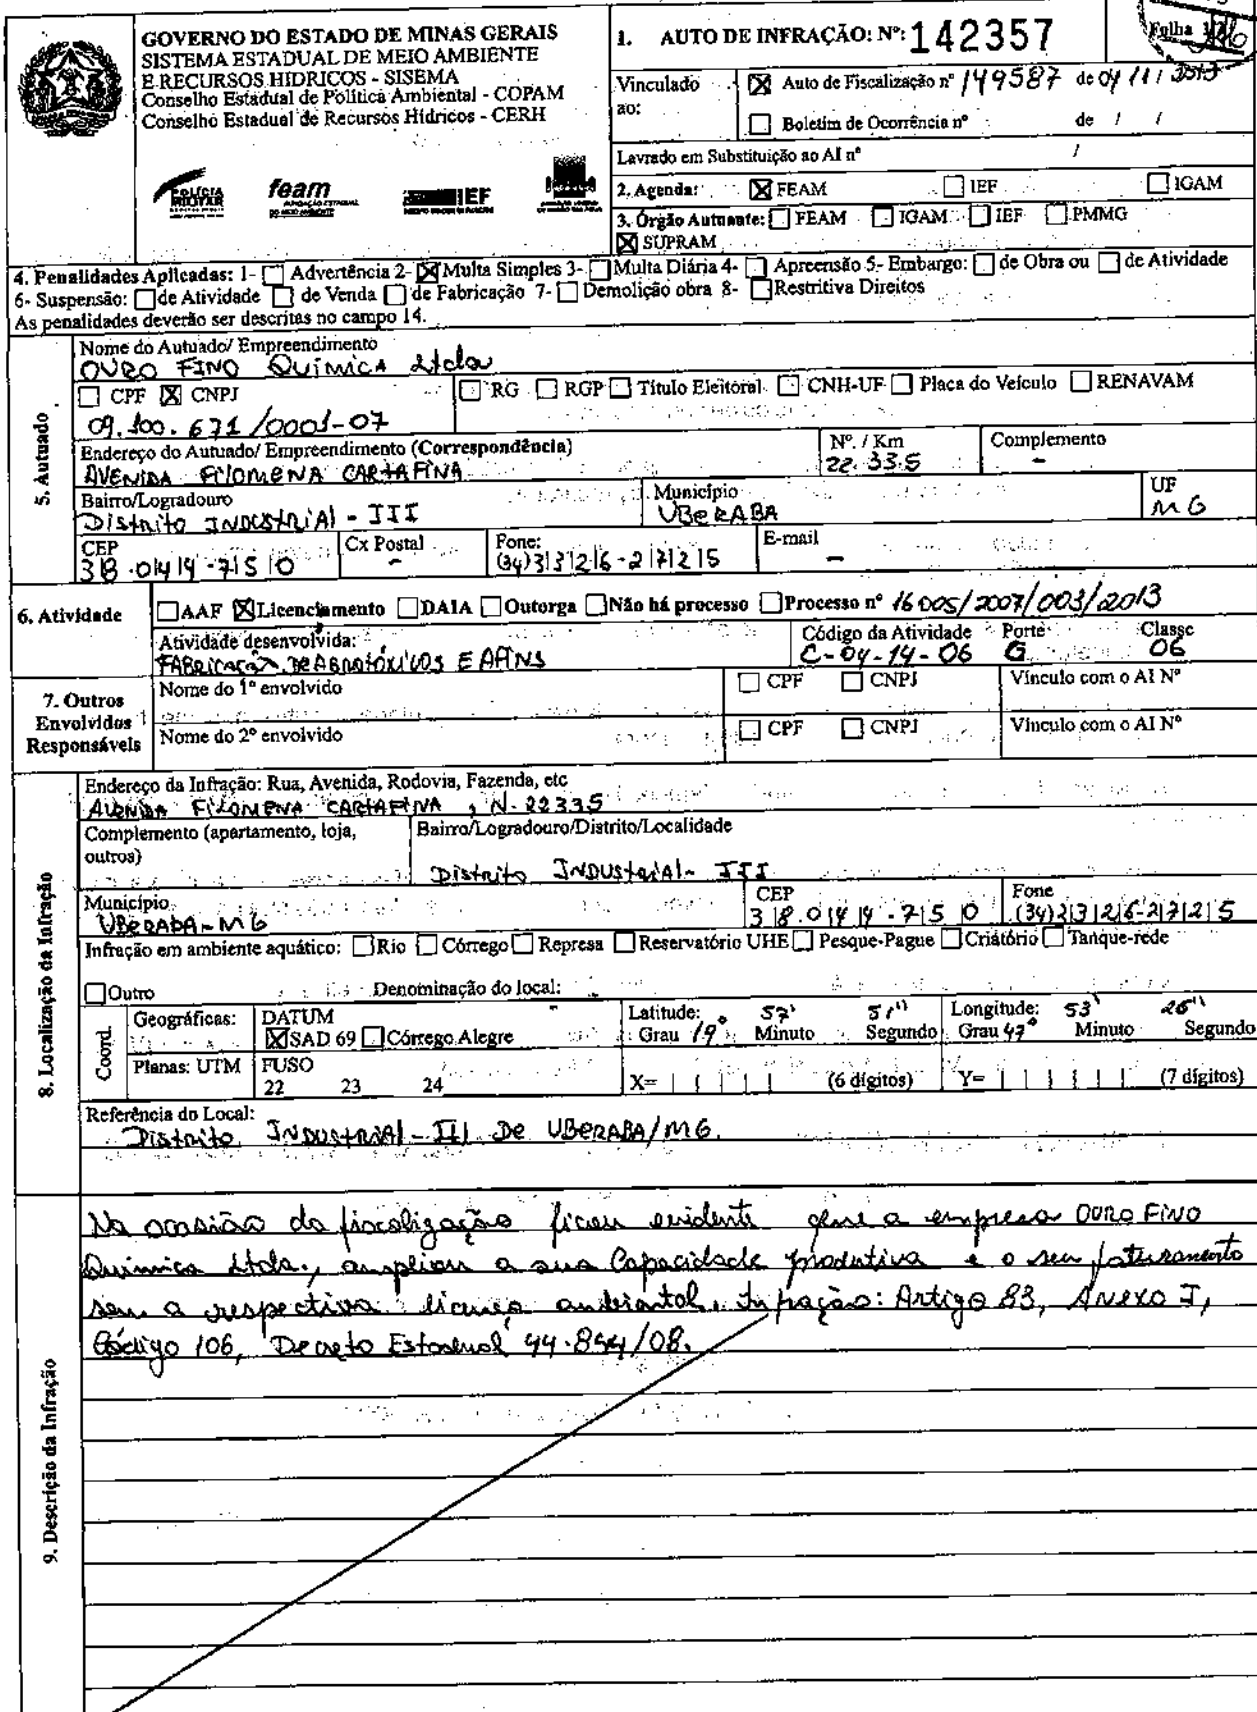 GOVERNO DO ESTADO DE MINAS GERAIS
SISTEMA ESTADUAL DE MEIO AMBIENTE
E RECURSOS HIDRICOS - SISEMA
Conselho Estadual de Política Ambiental - COPAM
Conselho Estadual de Recursos Hídricos - CERH
POLÍCIA MILITAR
feam
IEF
1. AUTO DE INFRAÇÃO: Nº: 142357
Folha
Vinculado ao:
Auto de Fiscalização nº 149587 de 04/11/2013
Boletim de Ocorrência nº de / /
Lavrado em Substituição ao AI nº /
2. Agenda: FEAM IEF IGAM
3. Órgão Autuante: FEAM IGAM IEF PMMG
SUPRAM
4. Penalidades Aplicadas: 1- Advertência 2- Multa Simples 3- Multa Diária 4- Apreensão 5- Embargo: de Obra ou de Atividade
6- Suspensão: de Atividade de Venda de Fabricação 7- Demolição obra 8- Restritiva Direitos
As penalidades deverão ser descritas no campo 14.
5. Autuado
Nome do Autuado/ Empreendimento
OURO FINO QUÍMICA Ltda
CPF CNPJ RG RGP Título Eleitoral CNH-UF Placa do Veículo RENAVAM
09.100.671/0001-07
Endereço do Autuado/ Empreendimento (Correspondência) Nº. / Km Complemento
AVENIDA FILOMENA CARTAFINA 22.335 -
Bairro/Logradouro Município UF
Distrito INDUSTRIAL - III UBERABA MG
CEP Cx Postal Fone: E-mail
38.044-750 - (34)3326-2725 -
6. Atividade
AAF Licenciamento DAIA Outorga Não há processo Processo nº 16005/2007/003/2013
Atividade desenvolvida: Código da Atividade Porte Classe
FABRICAÇÃO DE AGROTÓXICOS E AFINS C-04-14-06 G 06
7. Outros Envolvidos Responsáveis
Nome do 1º envolvido CPF CNPJ Vínculo com o AI Nº
Nome do 2º envolvido CPF CNPJ Vínculo com o AI Nº
8. Localização da Infração
Endereço da Infração: Rua, Avenida, Rodovia, Fazenda, etc
AVENIDA FILOMENA CARTAFINA, N- 22335
Complemento (apartamento, loja, outros) Bairro/Logradouro/Distrito/Localidade
Distrito INDUSTRIAL- III
Município CEP Fone
UBERABA-MG 38.044-750 (34)3326-2725
Infração em ambiente aquático: Rio Córrego Represa Reservatório UHE Pesque-Pague Criatório Tanque-rede
Outro Denominação do local:
Coord.
Geográficas: DATUM Latitude: 57' 51" Longitude: 53' 26"
SAD 69 Córrego Alegre Grau 19° Minuto Segundo Grau 47° Minuto Segundo
Planas: UTM FUSO
22 23 24 X= (6 dígitos) Y= (7 dígitos)
Referência do Local:
Distrito INDUSTRIAL-III DE UBERABA/MG.
9. Descrição da Infração
Na ocasião da fiscalização ficou evidente que a empresa OURO FINO
Química Ltda., ampliou a sua Capacidade produtiva e o seu faturamento
sem a respectiva licença ambiental. Infração: Artigo 83, Anexo I,
Código 106, Decreto Estadual 44.844/08.